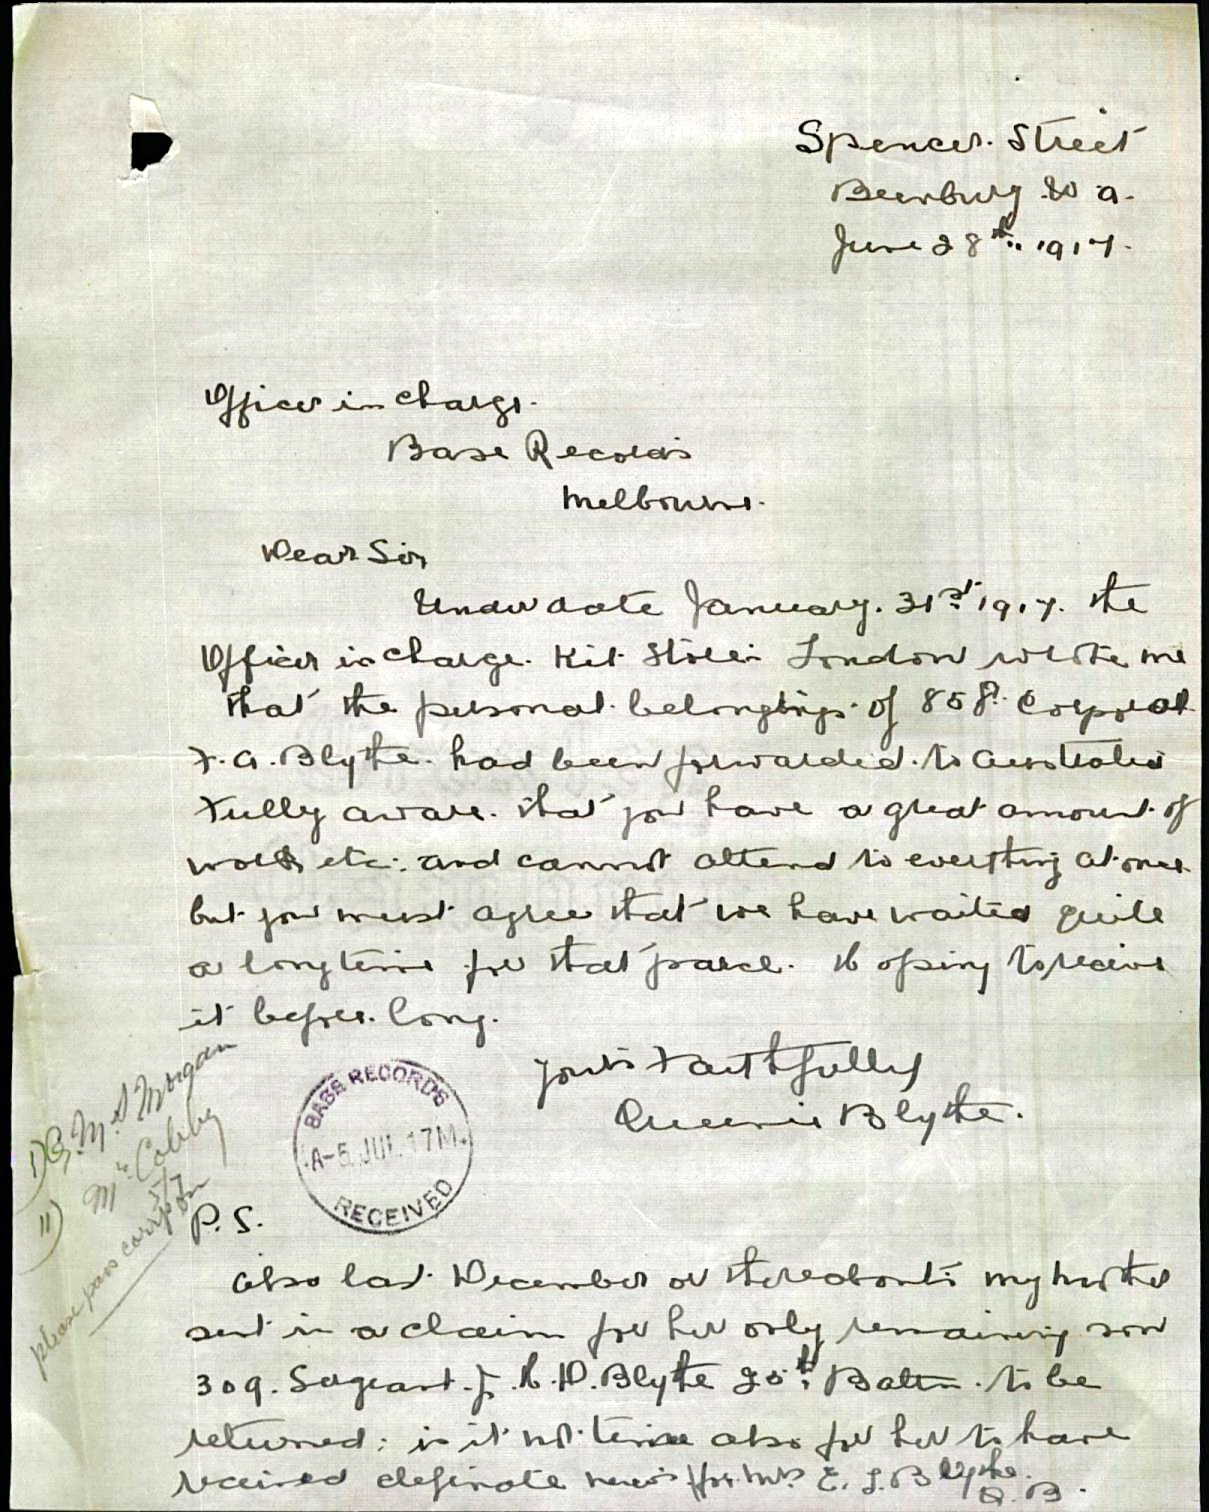 Spencer. Street
Bunbury W a.
June 28th.. 1917.
Officer in Charge.
Base Records
Melbourne.
Dear Sir
Under date January. 31st 1917. the
Officer in Charge. Kit Store London wrote me
that the personal belongings of 858. Corporal
F. A. Blythe. had been forwarded. to Australia
Fully aware. that you have a great amount of
work etc. and cannot attend to everything at once.
but you must agree that we have waited quite
a long time for that parcel. Hoping to receive
it before. long.
Yours Faithfully
Queenie Blythe.
BASE RECORDS
A-5 JUL 17 M.
RECEIVED
1) G. Morgan
11) Mr Colby
5/7
please pass corresp on
P. S.
Also last December or thereabouts my mother
sent in a claim for her only remaining son
309. Sergeant. H. D. Blythe Battn. to be
returned: is it not time also for her to have
received definate news for. Mrs E. J. Blythe.
Q. B.